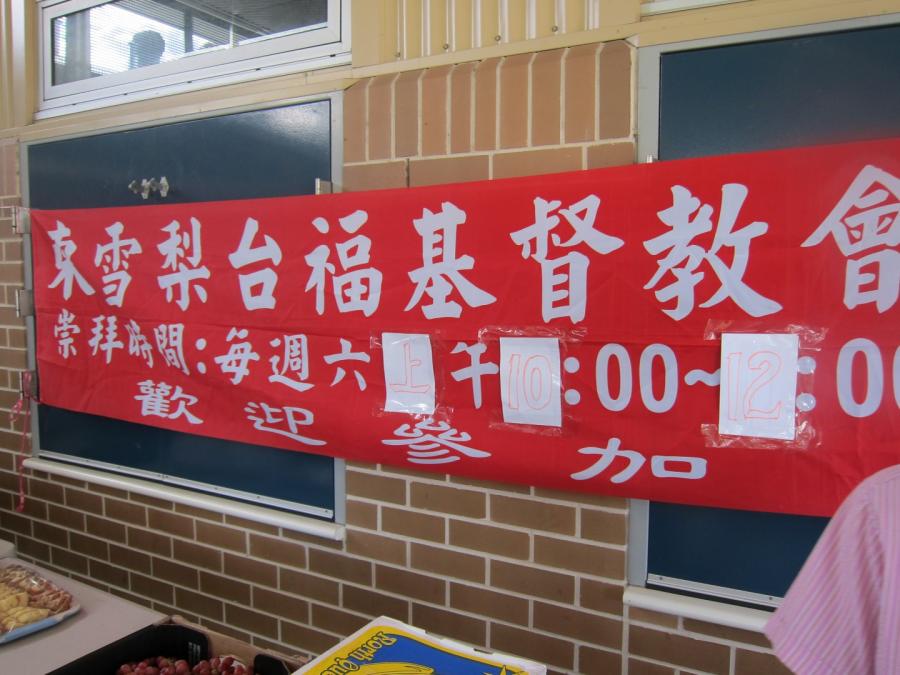 東雪梨台福基督教會
崇拜時間:每週六上午10:00~12:00
歡迎參加
North Que